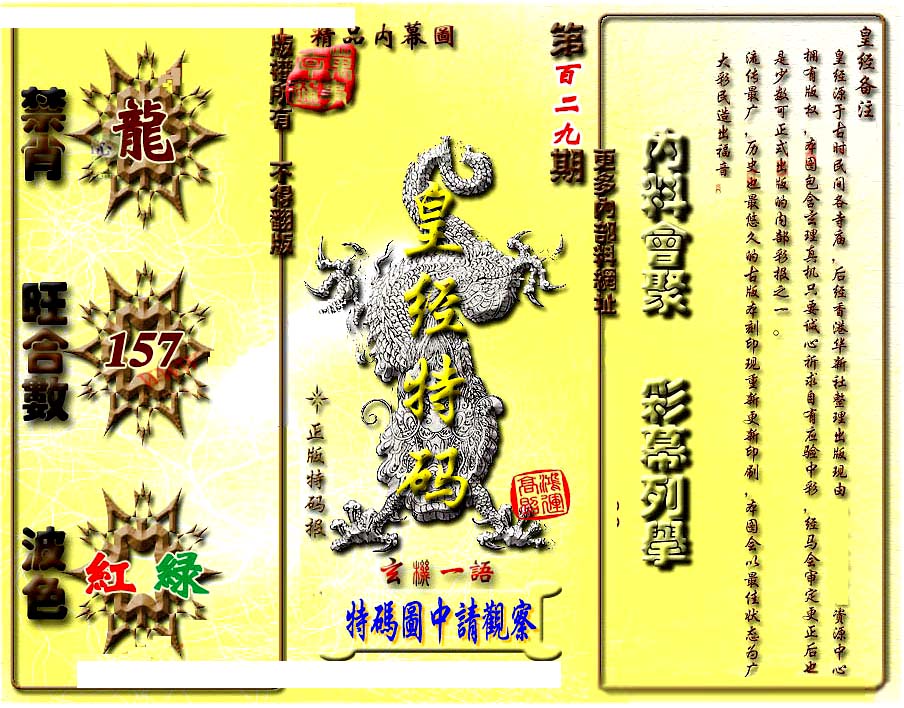 皇经备注
皇经源于古时民间各寺庙,后经香港华新社整理出版现由 资源中心
拥有版权,本图包含玄理真机只要诚心祈求自有应验中彩,经马会审定更正后也
是少数可正式出版的内部彩报之一。
流传最广,历史也最悠久的古版本刻印现重新更新印刷,本图会以最佳状态为广
大彩民造出福音。
內料會聚 彩幕列舉
更多內部料網址
第百二九期
精品内幕圖
皇经特码
正版特码报
鴻運
高照
玄機一語
特碼圖中請觀察
版權所有 不得翻版
禁肖
龍
旺合數
157
波色
紅 綠